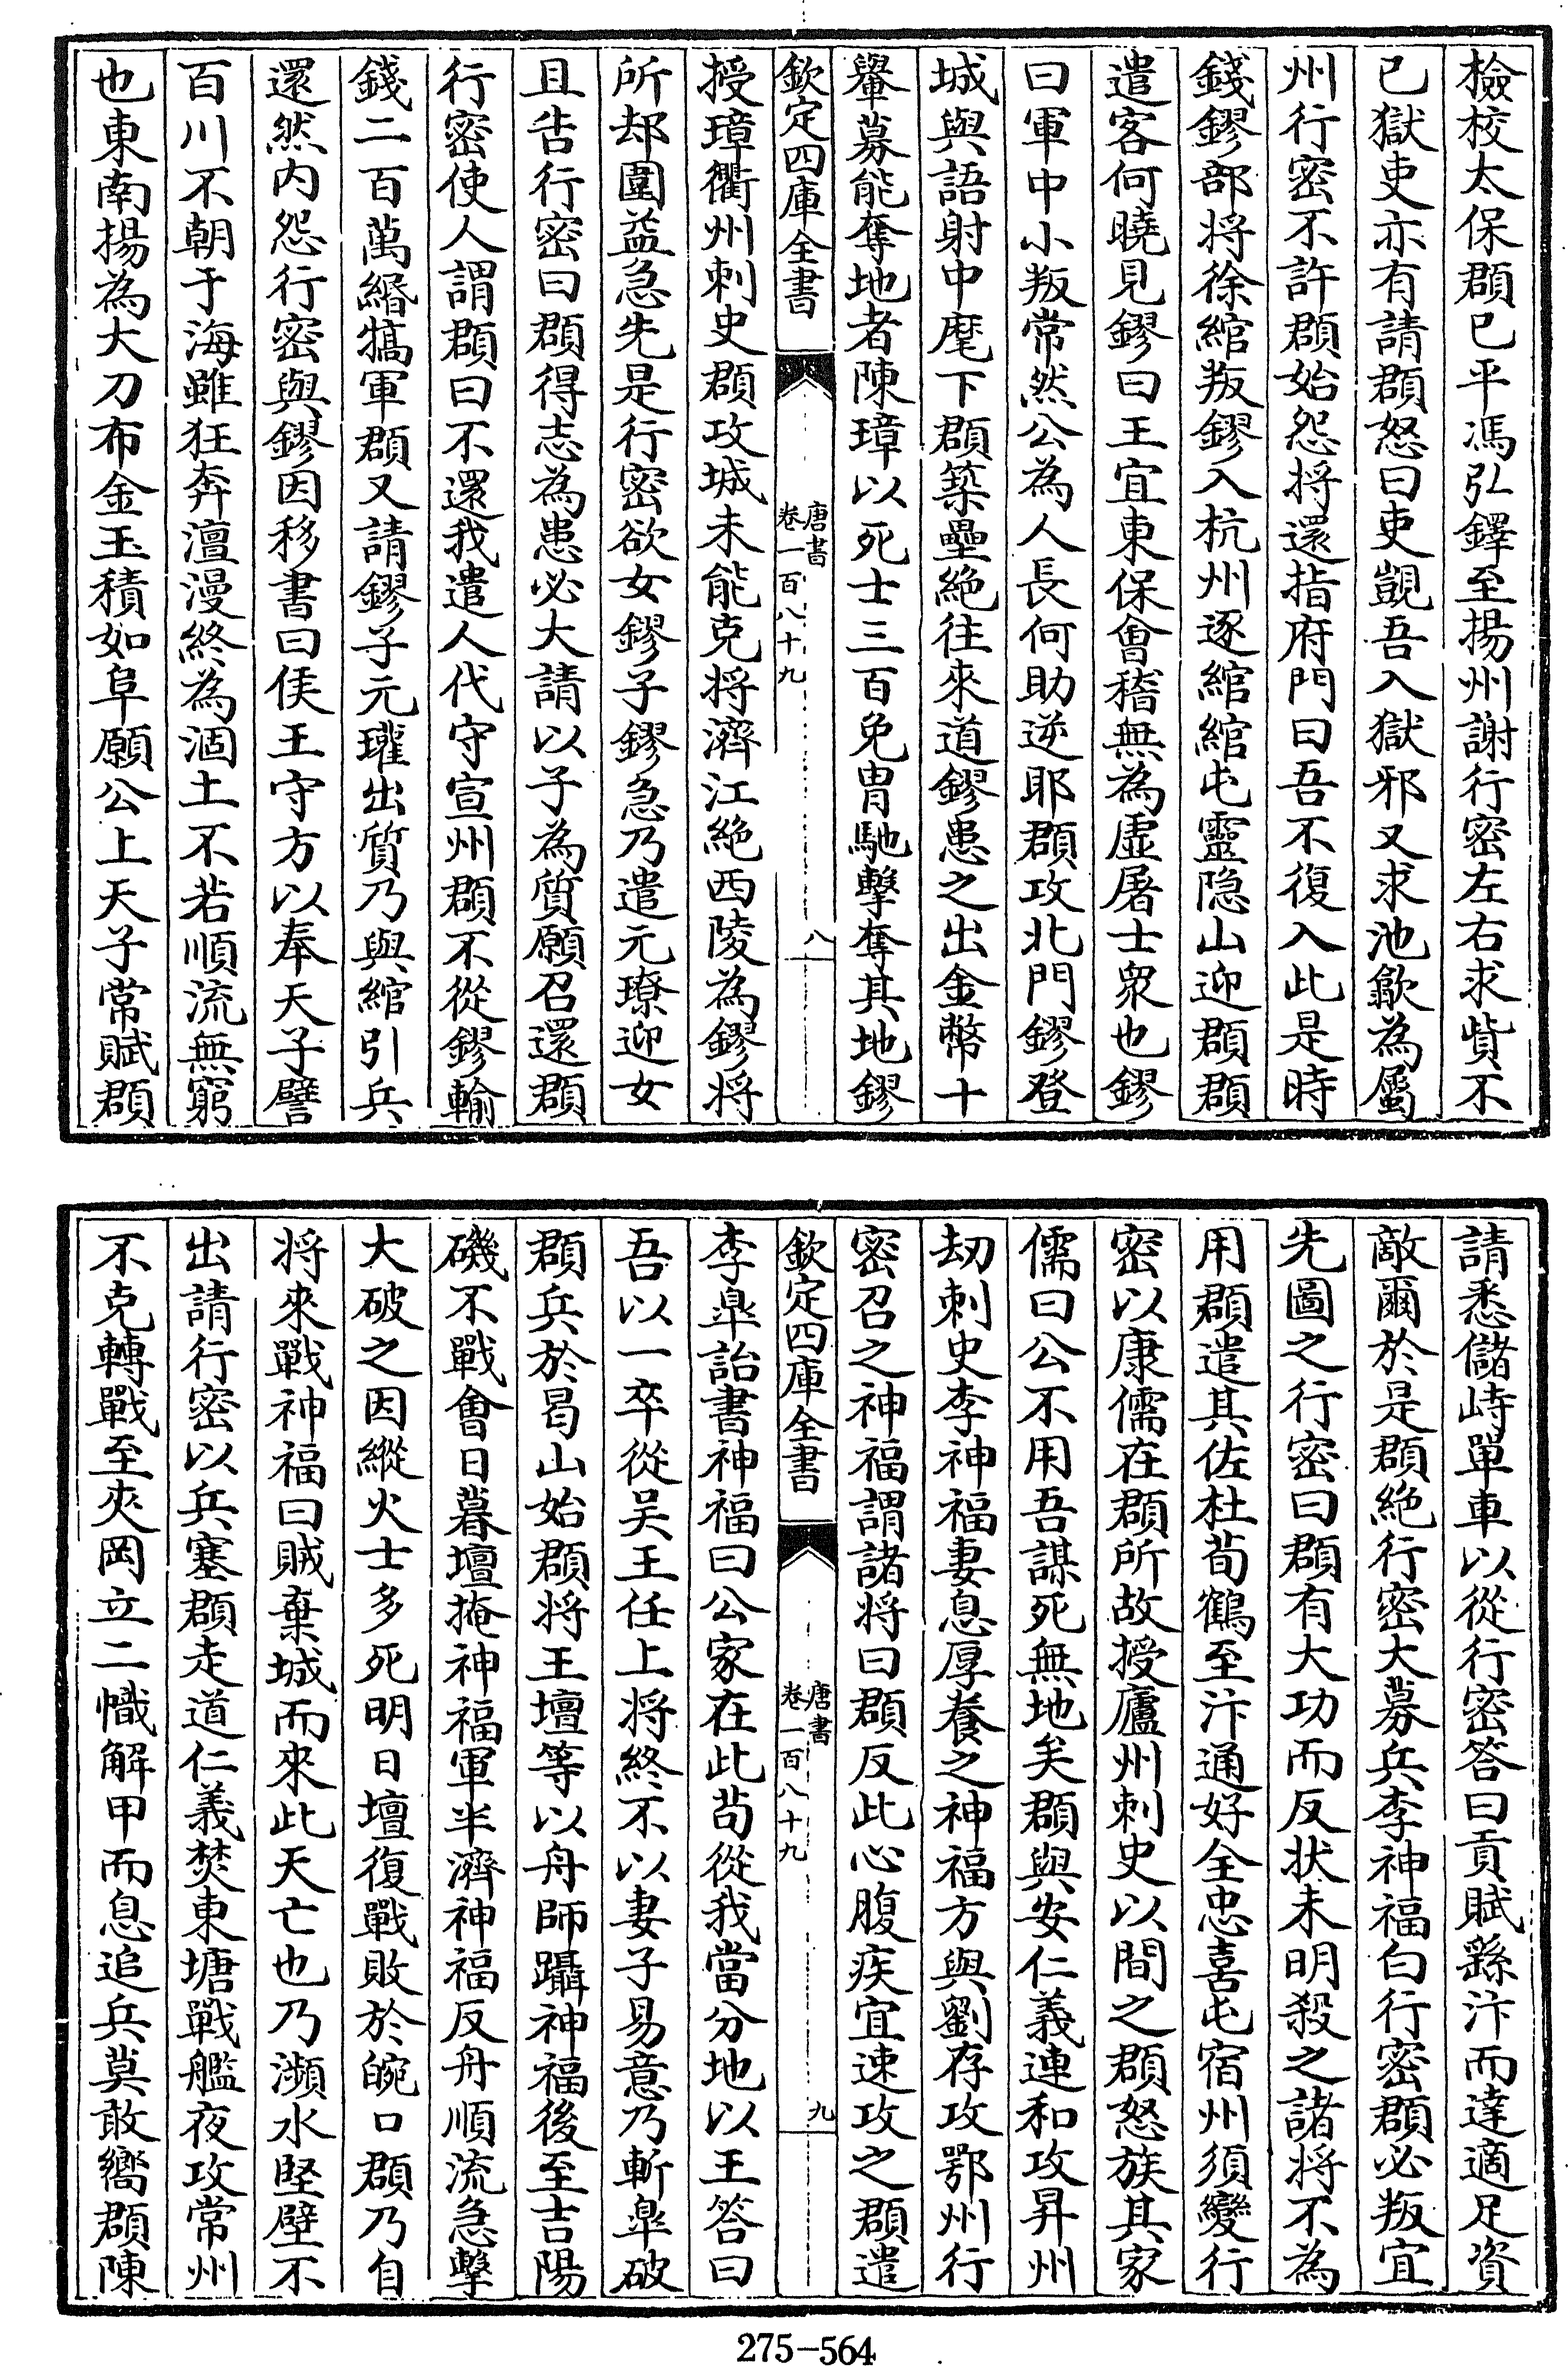 檢校太保頵已平馮弘鐸至揚州謝行密左右求貲不
已獄吏亦有請頵怒曰吏覬吾入獄邪又求池歙為屬
州行密不許頵始怨將還指府門曰吾不復入此是時
錢鏐部将徐綰叛鏐入杭州逐綰綰屯靈隐山迎頵頵
遣客何曉見鏐曰王宜東保會稽無為虛屠士衆也鏐
曰軍中小叛常然公為人長何助逆耶頵攻北門鏐登
城與語射中麾下頵築壘絶往來道鏐患之出金幣十
轝募能奪地者陳璋以死士三百免胄馳擊奪其地鏐
欽定四庫全書
唐書
卷一百八十九
八
授璋衢州刺史頵攻城未能克将濟江絶西陵為鏐将
所却圍益急先是行密欲女鏐子鏐急乃遣元璙迎女
且告行密曰頵得志為患必大請以子為質願召還頵
行密使人謂頵曰不還我遣人代守宣州頵不從鏐輸
錢二百萬緡犒軍頵又請鏐子元瓘出質乃與綰引兵
還然内怨行密與鏐因移書曰侯王守方以奉天子譬
百川不朝于海雖狂奔澶漫終為涸土不若順流無窮
也東南揚為大刀布金玉積如阜願公上天子常賦頵
請悉儲峙單車以從行密答曰貢賦繇汴而達適足資
敵爾於是頵絶行密大募兵李神福白行密頵必叛宜
先圖之行密曰頵有大功而反状未明殺之諸將不為
用頵遣其佐杜荀鶴至汴通好全忠喜屯宿州須變行
密以康儒在頵所故授廬州刺史以間之頵怒族其家
儒曰公不用吾謀死無地矣頵與安仁義連和攻昇州
刼刺史李神福妻息厚養之神福方與劉存攻鄂州行
密召之神福謂諸将曰頵反此心腹疾宜速攻之頵遣
欽定四庫全書
唐書
卷一百八十九
九
李皐詒書神福曰公家在此苟從我當分地以王答曰
吾以一卒從吴王任上將終不以妻子易意乃斬皐破
頵兵於曷山始頵將王壇等以舟師躡神福後至吉陽
磯不戰會日暮壇掩神福軍半濟神福反舟順流急擊
大破之因縱火士多死明日壇復戰敗於皖口頵乃自
將來戰神福曰賊棄城而來此天亡也乃瀕水堅壁不
出請行密以兵塞頵走道仁義焚東塘戰艦夜攻常州
不克轉戰至夾岡立二幟解甲而息追兵莫敢嚮頵陳
275-564